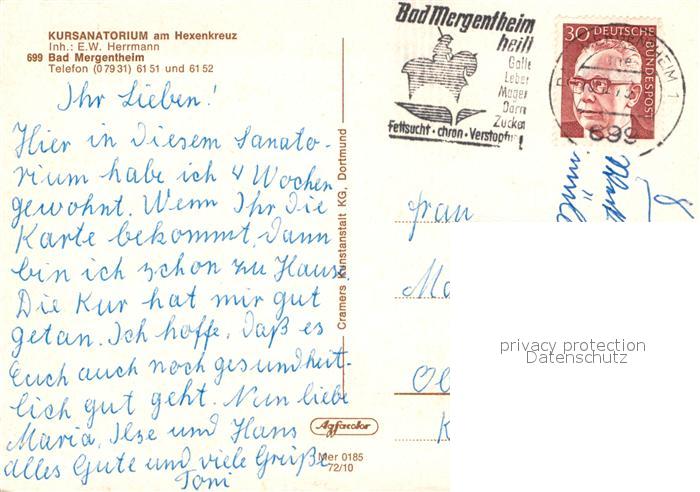 KURSANATORIUM am Hexenkreuz
Inh.: E.W. Herrmann
699 Bad Mergentheim
Telefon (07931) 6151 und 6152
Ihr Lieben!
Hier in diesem Sanato-
rium habe ich 4 Wochen
gewohnt. Wenn Ihr die
Karte bekommt, dann
bin ich schon zu Hause.
Die Kur hat mir gut
getan. Ich hoffe, daß es
Euch auch noch gesundheit-
lich gut geht. Nun liebe
Maria, Ilse und Hans
alles Gute und viele Grüße
Toni
Cramers Kunstanstalt KG, Dortmund
Agfacolor
Mer 0185
72/10
Bad Mergentheim
heilt
Galle
Leber
Magen
Darm
Zucker
Fettsucht · chron. Verstopfung!
30 DEUTSCHE
BUNDESPOST
MERGENTHEIM 1
699
Frau
privacy protection
Datenschutz